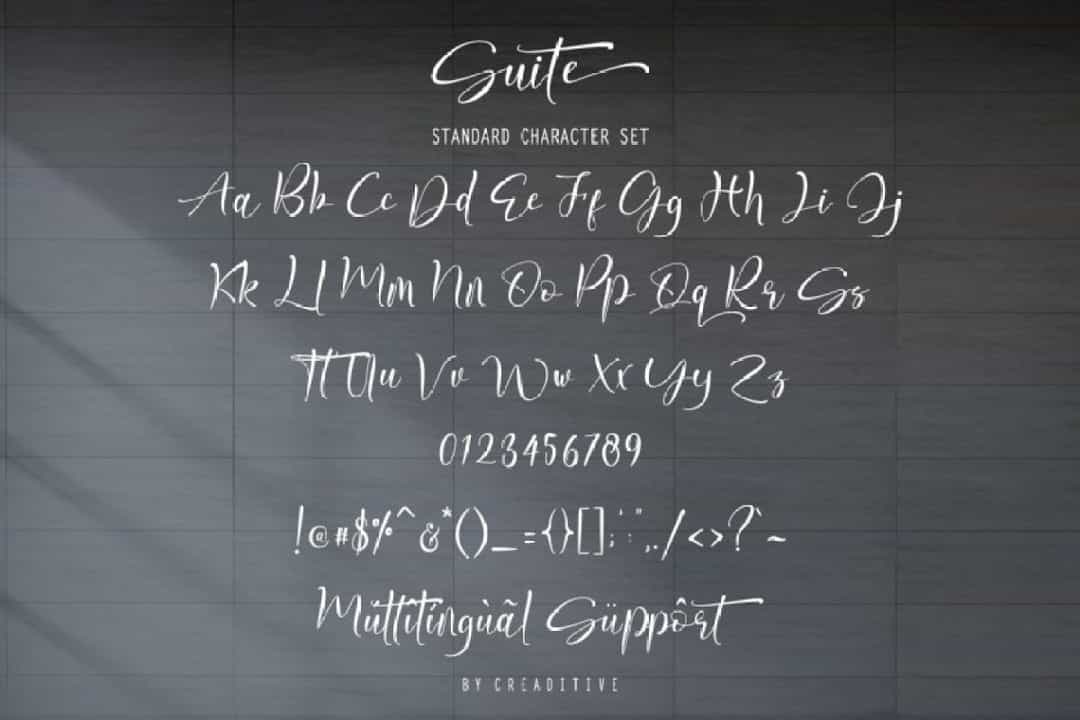 Suite
STANDARD CHARACTER SET
Aa Bb Cc Dd Ee Ff Gg Hh Ii Jj
Kk Ll Mm Nn Oo Pp Qq Rr Ss
Tt Uu Vv Ww Xx Yy Zz
0123456789
!@#$%^&*()_={}[];:'",./<>?`~
Múltîlíngùãl Süppôrt
BY CREADITIVE